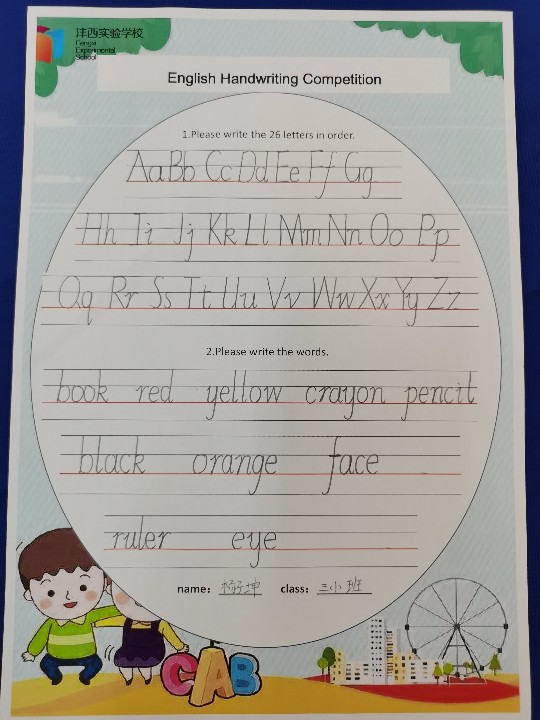 沣西实验学校
Fengxi
Experimental
School
English Handwriting Competition
1.Please write the 26 letters in order.
Aa Bb Cc Dd Ee Ff Gg
Hh Ii Jj Kk Ll Mm Nn Oo Pp
Qq Rr Ss Tt Uu Vv Ww Xx Yy Zz
2.Please write the words.
book red yellow crayon pencil
black orange face
ruler eye
name: 杨子坤 class: 三小班
CAB